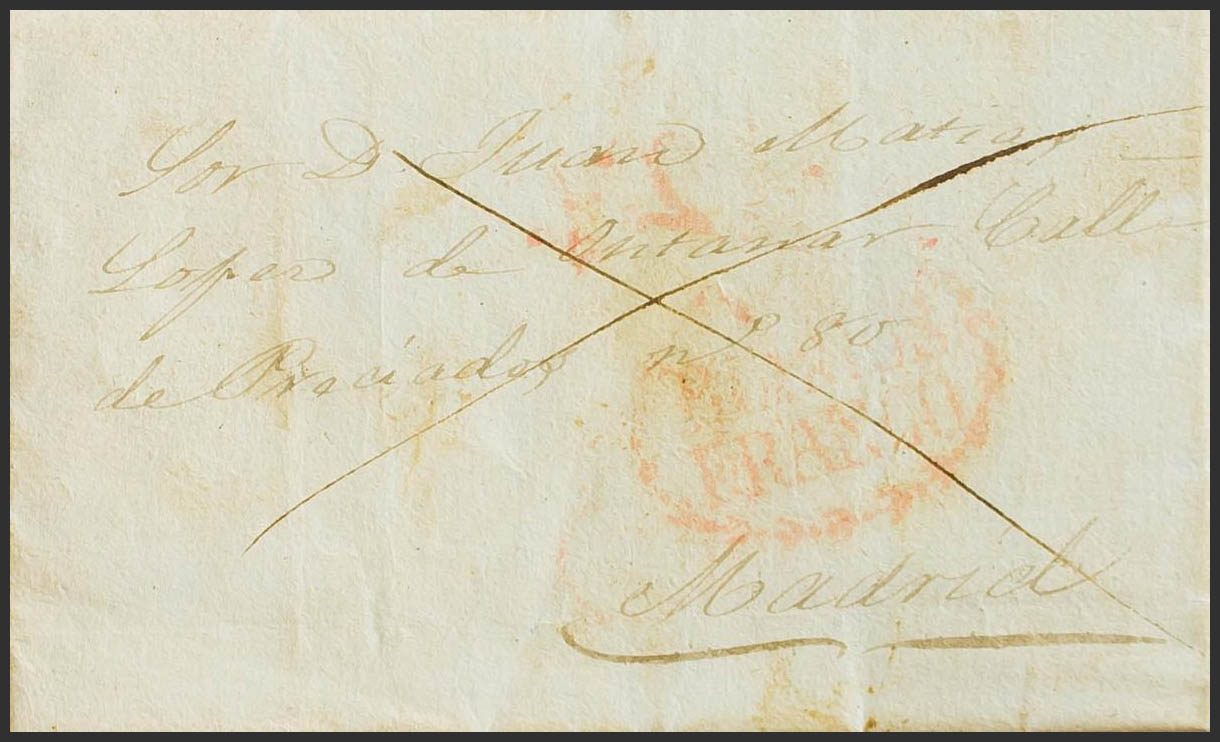 Sor D. Juan Matias
Lopez de Antanar Calle
de Preciados nº 80
FRANCO
Madrid